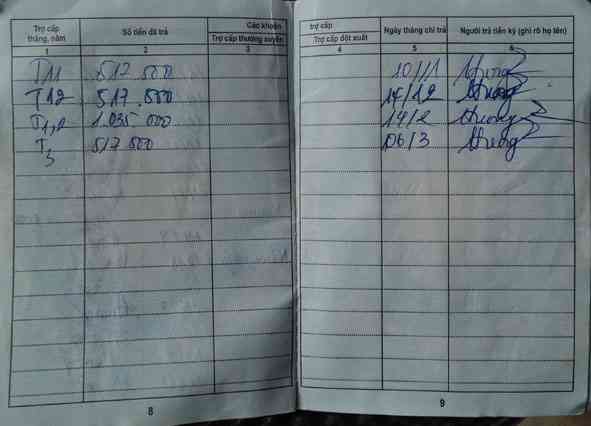 Trợ cấp tháng, năm
Số tiền đã trả
Các khoản
Trợ cấp thường xuyên
1 2 3
T11 517.500
T12 517.500
T1,2 1.035.000
T3 517.500
8
trợ cấp
Trợ cấp đột xuất
Ngày tháng chi trả
Người trả tiền ký (ghi rõ họ tên)
4 5 6
10/11 Hương
14/12 Hương
14/2 Hương
06/3 Hương
9